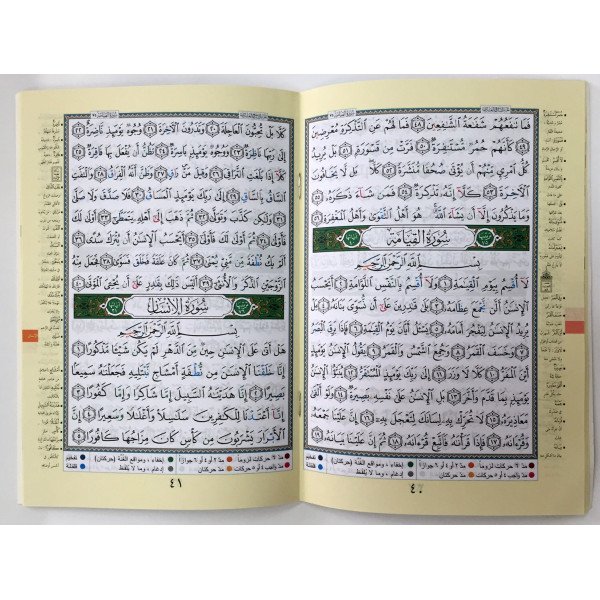 فَمَا تَنفَعُهُمْ شَفَٰعَةُ ٱلشَّٰفِعِينَ ٤٨ فَمَا لَهُمْ عَنِ ٱلتَّذْكِرَةِ مُعْرِضِينَ
٤٩ كَأَنَّهُمْ حُمُرٌ مُّسْتَنفِرَةٌ ٥٠ فَرَّتْ مِن قَسْوَرَةٍۭ ٥١ بَلْ يُرِيدُ
كُلُّ ٱمْرِئٍ مِّنْهُمْ أَن يُؤْتَىٰ صُحُفًا مُّنَشَّرَةً ٥٢ كَلَّا بَل لَّا يَخَافُونَ
ٱلْءَاخِرَةَ ٥٣ كَلَّآ إِنَّهُۥ تَذْكِرَةٌ ٥٤ فَمَن شَآءَ ذَكَرَهُۥ ٥٥
وَمَا يَذْكُرُونَ إِلَّآ أَن يَشَآءَ ٱللَّهُ هُوَ أَهْلُ ٱلتَّقْوَىٰ وَأَهْلُ ٱلْمَغْفِرَةِ ٥٦
سُورَةُ القِيَامَةِ
بِسْمِ ٱللَّهِ ٱلرَّحْمَٰنِ ٱلرَّحِيمِ
لَآ أُقْسِمُ بِيَوْمِ ٱلْقِيَٰمَةِ ١ وَلَآ أُقْسِمُ بِٱلنَّفْسِ ٱللَّوَّامَةِ ٢ أَيَحْسَبُ
ٱلْإِنسَٰنُ أَلَّن نَّجْمَعَ عِظَامَهُۥ ٣ بَلَىٰ قَٰدِرِينَ عَلَىٰٓ أَن نُّسَوِّىَ بَنَانَهُۥ ٤ بَلْ
يُرِيدُ ٱلْإِنسَٰنُ لِيَفْجُرَ أَمَامَهُۥ ٥ يَسْـَٔلُ أَيَّانَ يَوْمُ ٱلْقِيَٰمَةِ ٦ فَإِذَا بَرِقَ ٱلْبَصَرُ
٧ وَخَسَفَ ٱلْقَمَرُ ٨ وَجُمِعَ ٱلشَّمْسُ وَٱلْقَمَرُ ٩ يَقُولُ ٱلْإِنسَٰنُ يَوْمَئِذٍ
أَيْنَ ٱلْمَفَرُّ ١٠ كَلَّا لَا وَزَرَ ١١ إِلَىٰ رَبِّكَ يَوْمَئِذٍ ٱلْمُسْتَقَرُّ ١٢ يُنَبَّؤُا۟
ٱلْإِنسَٰنُ يَوْمَئِذٍۭ بِمَا قَدَّمَ وَأَخَّرَ ١٣ بَلِ ٱلْإِنسَٰنُ عَلَىٰ نَفْسِهِۦ بَصِيرَةٌ ١٤ وَلَوْ أَلْقَىٰ
مَعَاذِيرَهُۥ ١٥ لَا تُحَرِّكْ بِهِۦ لِسَانَكَ لِتَعْجَلَ بِهِۦٓ ١٦ إِنَّ عَلَيْنَا جَمْعَهُۥ
وَقُرْءَانَهُۥ ١٧ فَإِذَا قَرَأْنَٰهُ فَٱتَّبِعْ قُرْءَانَهُۥ ١٨ ثُمَّ إِنَّ عَلَيْنَا بَيَانَهُۥ ١٩
مدّ ٦ حركات لزوماً مدّ ٢ أو ٤ أو ٦ جوازاً إخفاء، ومواقع الغُنَّة (حركتان) تفخيم
مدّ واجب ٤ أو ٥ حركات مدّ حركتان إدغام، وما لا يُلفَظ قلقلة
٤٠
كَلَّا بَلْ تُحِبُّونَ ٱلْعَاجِلَةَ ٢٠ وَتَذَرُونَ ٱلْءَاخِرَةَ ٢١ وُجُوهٌ يَوْمَئِذٍ نَّاضِرَةٌ ٢٢
إِلَىٰ رَبِّهَا نَاظِرَةٌ ٢٣ وَوُجُوهٌ يَوْمَئِذٍۭ بَاسِرَةٌ ٢٤ تَظُنُّ أَن يُفْعَلَ بِهَا فَاقِرَةٌ ٢٥
كَلَّآ إِذَا بَلَغَتِ ٱلتَّرَاقِىَ ٢٦ وَقِيلَ مَنْ رَاقٍ ٢٧ وَظَنَّ أَنَّهُ ٱلْفِرَاقُ ٢٨ وَٱلْتَفَّتِ
ٱلسَّاقُ بِٱلسَّاقِ ٢٩ إِلَىٰ رَبِّكَ يَوْمَئِذٍ ٱلْمَسَاقُ ٣٠ فَلَا صَدَّقَ وَلَا صَلَّىٰ
٣١ وَلَٰكِن كَذَّبَ وَتَوَلَّىٰ ٣٢ ثُمَّ ذَهَبَ إِلَىٰٓ أَهْلِهِۦ يَتَمَطَّىٰٓ ٣٣ أَوْلَىٰ لَكَ
فَأَوْلَىٰ ٣٤ ثُمَّ أَوْلَىٰ لَكَ فَأَوْلَىٰٓ ٣٥ أَيَحْسَبُ ٱلْإِنسَٰنُ أَن يُتْرَكَ سُدًى ٣٦
أَلَمْ يَكُ نُطْفَةً مِّن مَّنِىٍّ يُمْنَىٰ ٣٧ ثُمَّ كَانَ عَلَقَةً فَخَلَقَ فَسَوَّىٰ ٣٨ فَجَعَلَ مِنْهُ
ٱلزَّوْجَيْنِ ٱلذَّكَرَ وَٱلْأُنثَىٰٓ ٣٩ أَلَيْسَ ذَٰلِكَ بِقَٰدِرٍ عَلَىٰٓ أَن يُحْـِۧىَ ٱلْمَوْتَىٰ ٤٠
سُورَةُ الإِنسَانِ
بِسْمِ ٱللَّهِ ٱلرَّحْمَٰنِ ٱلرَّحِيمِ
هَلْ أَتَىٰ عَلَى ٱلْإِنسَٰنِ حِينٌ مِّنَ ٱلدَّهْرِ لَمْ يَكُن شَيْـًٔا مَّذْكُورًا ١
إِنَّا خَلَقْنَا ٱلْإِنسَٰنَ مِن نُّطْفَةٍ أَمْشَاجٍ نَّبْتَلِيهِ فَجَعَلْنَٰهُ سَمِيعًۢا
بَصِيرًا ٢ إِنَّا هَدَيْنَٰهُ ٱلسَّبِيلَ إِمَّا شَاكِرًا وَإِمَّا كَفُورًا ٣
إِنَّآ أَعْتَدْنَا لِلْكَٰفِرِينَ سَلَٰسِلَا۟ وَأَغْلَٰلًا وَسَعِيرًا ٤ إِنَّ
ٱلْأَبْرَارَ يَشْرَبُونَ مِن كَأْسٍ كَانَ مِزَاجُهَا كَافُورًا ٥
مدّ ٦ حركات لزوماً مدّ ٢ أو ٤ أو ٦ جوازاً إخفاء، ومواقع الغُنَّة (حركتان) تفخيم
مدّ واجب ٤ أو ٥ حركات مدّ حركتان إدغام، وما لا يُلفَظ قلقلة
٤١